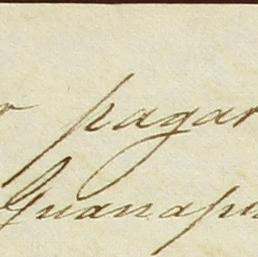 r pagar
Guanap